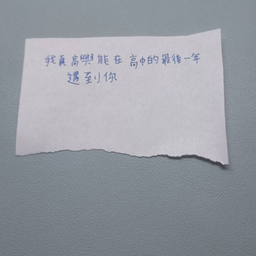 我真高興能在高中的最後一年
遇到你